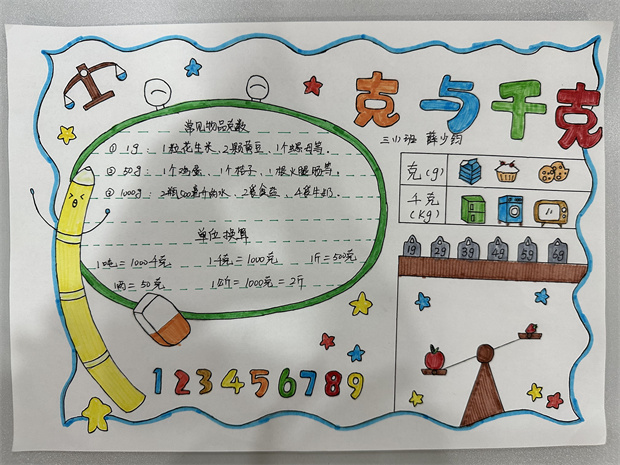 克与千克
三(1)班 薛少钧
常见物品克数
① 1g：1粒花生米、2颗黄豆、1个螺母等。
② 50g：1个鸡蛋、1个桔子、1根火腿肠等。
③ 1000g：2瓶500毫升的水、2袋食盐、4袋牛奶。
单位换算
1吨=1000千克 1千克=1000克 1斤=500克
1两=50克 1公斤=1000克=2斤
克(g)
千克(kg)
1g 2g 3g 4g 5g 6g
1 2 3 4 5 6 7 8 9